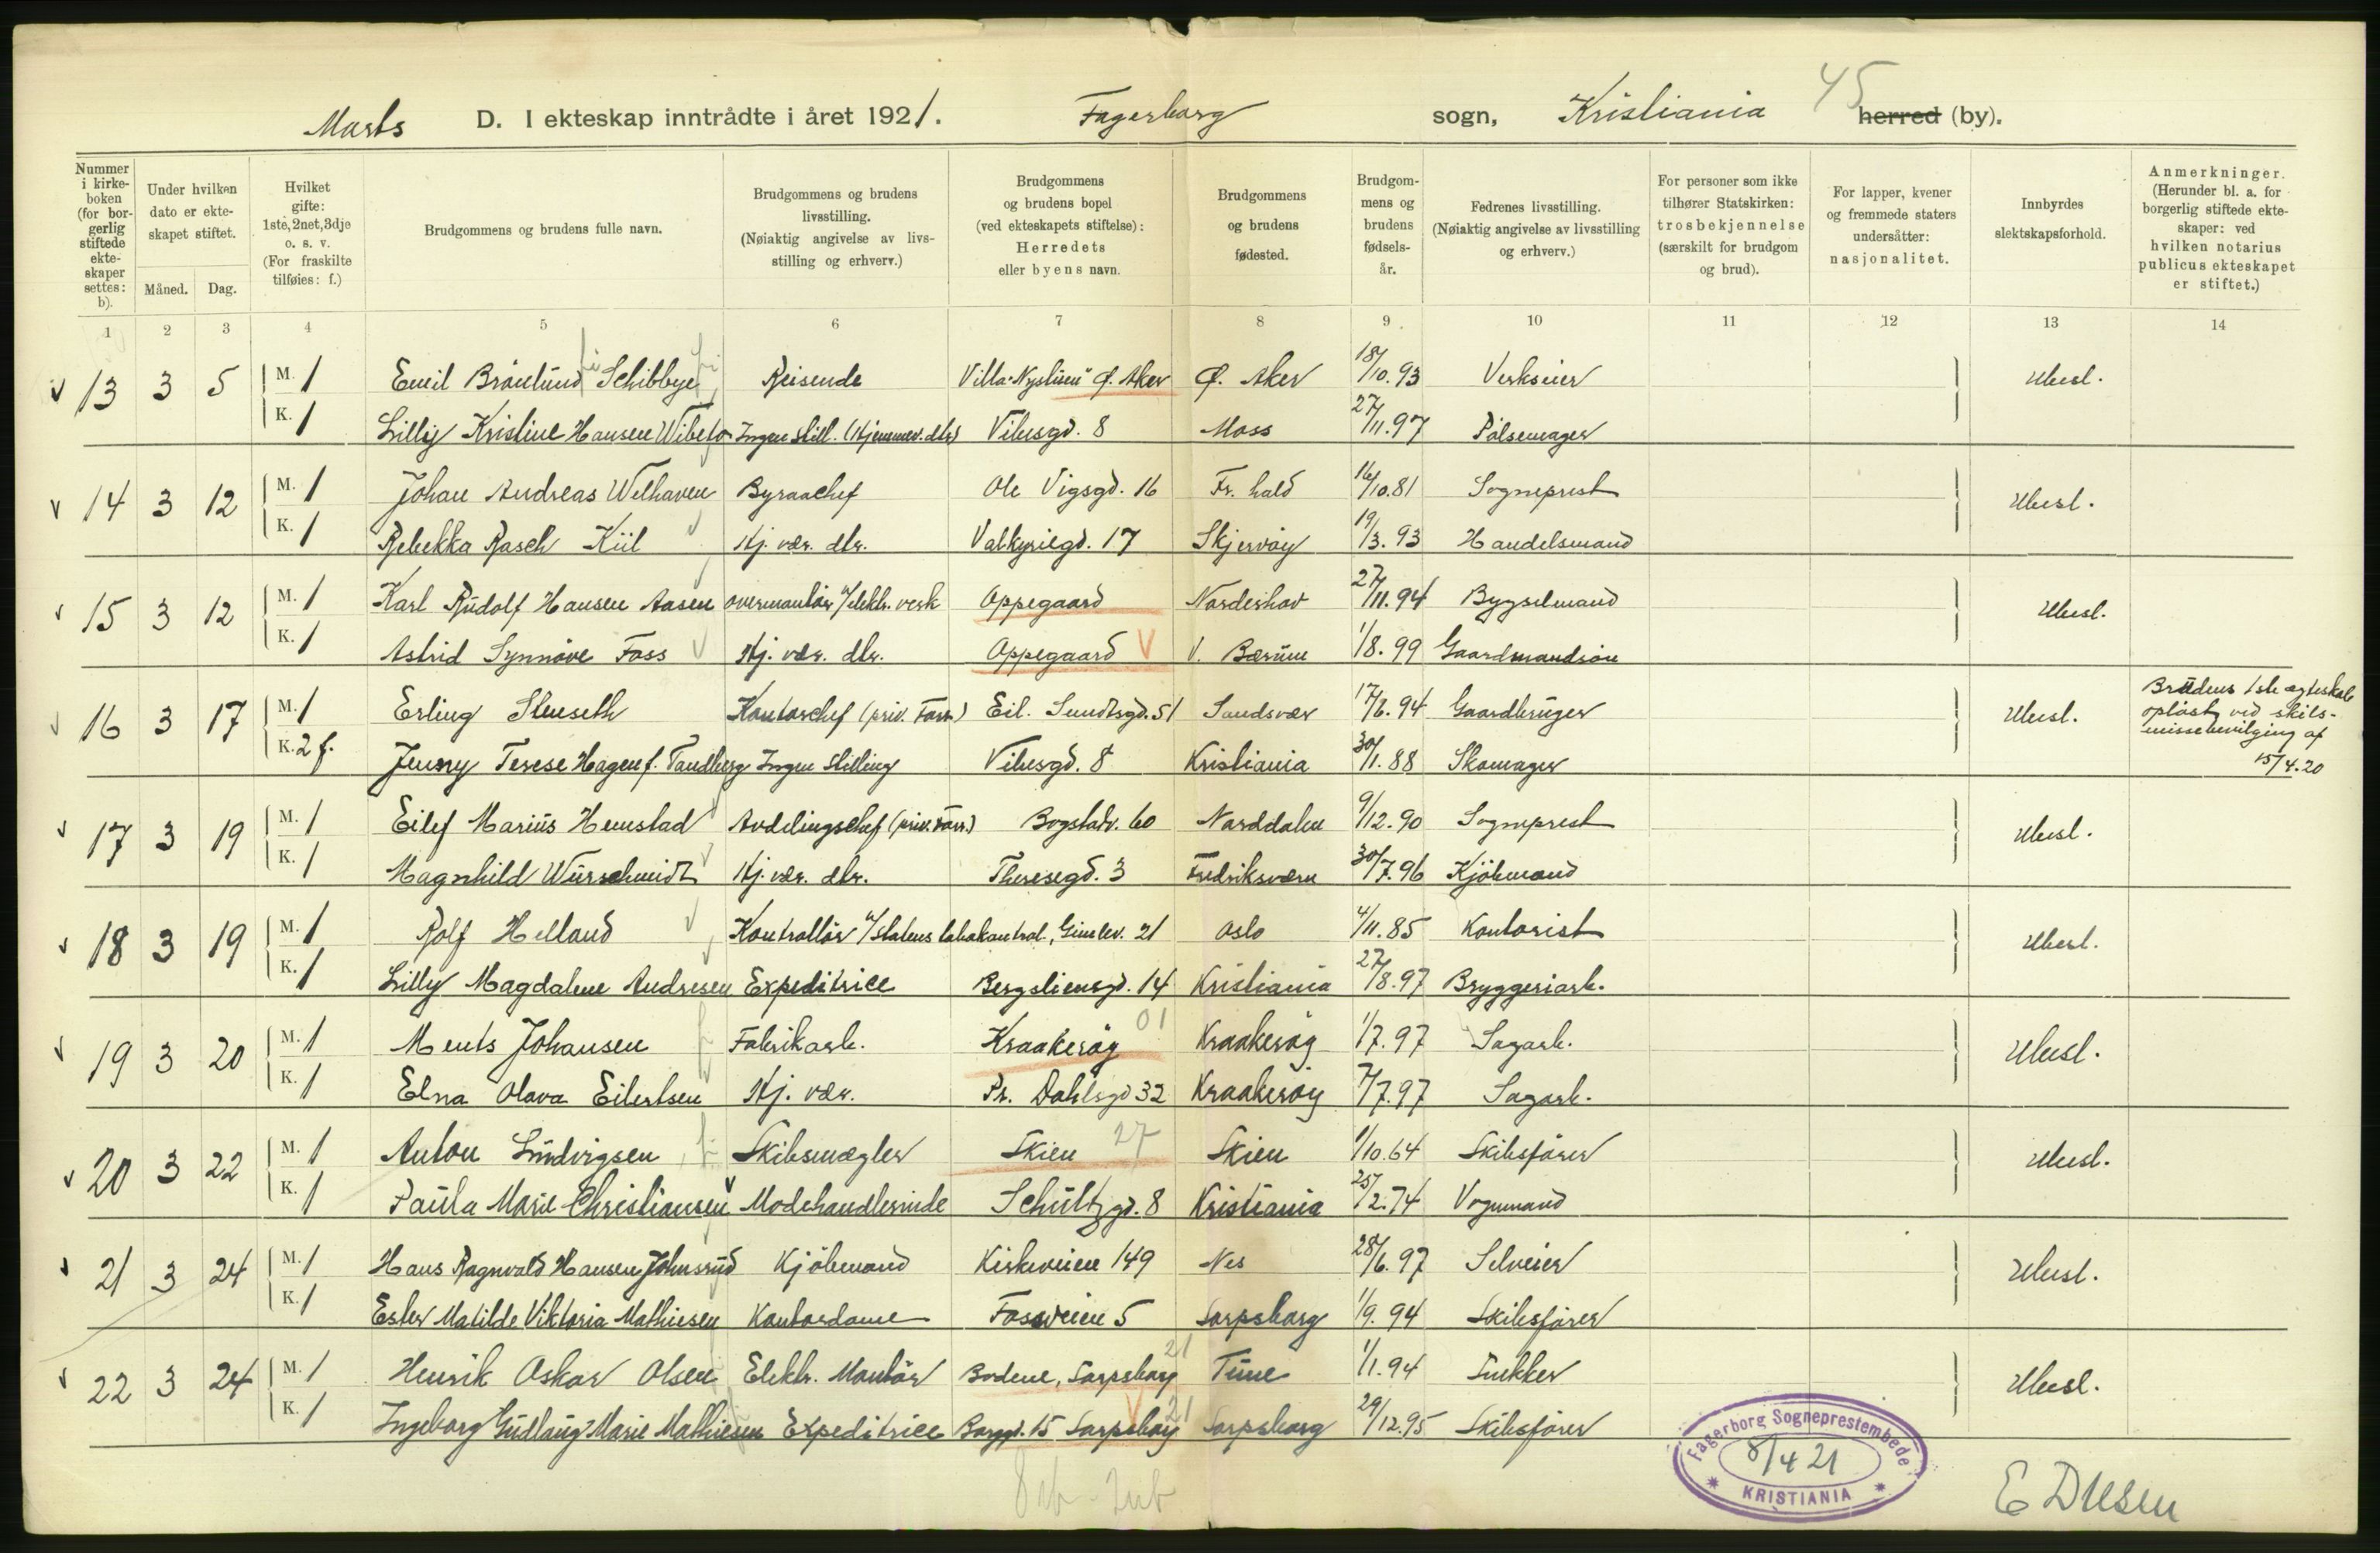 45
Marts D. I ekteskap inntrådte i året 1921. Fagerborg sogn, Kristiania herred (by).
Nummer i kirkeboken (for borgerlig stiftede ekteskaper settes: b).
Under hvilken dato er ekteskapet stiftet.
Måned. Dag.
Hvilket gifte: 1ste, 2net, 3dje o. s. v. (For fraskilte tilføies: f.)
Brudgommens og brudens fulle navn.
Brudgommens og brudens livsstilling. (Nøiaktig angivelse av livsstilling og erhverv.)
Brudgommens og brudens bopel (ved ekteskapets stiftelse): Herredets eller byens navn.
Brudgommens og brudens fødested.
Brudgommens og brudens fødselsår.
Fedrenes livsstilling. (Nøiaktig angivelse av livsstilling og erhverv.)
For personer som ikke tilhører Statskirken: trosbekjennelse (særskilt for brudgom og brud).
For lapper, kvener og fremmede staters undersåtter: nasjonalitet.
Innbyrdes slektskapsforhold.
Anmerkninger. (Herunder bl. a. for borgerlig stiftede ekteskaper: ved hvilken notarius publicus ekteskapet er stiftet.)
1 2 3 4 5 6 7 8 9 10 11 12 13 14
13 3 5 M. 1 Emil Brönlund Schibbye Reisende Villa Ø. Aker Ø. Aker 18/10.93 Verkseier Ubesl.
K. 1 Lilly Kristine Hansen Wibeto Ingen still. (Hjemmev. dtr.) Vibesgd. 8 Moss 27/11.97 Pölsemager
14 3 12 M. 1 Johan Andreas Welhaven Byraachef Ole Vigsgd. 16 Fr. hald 16/10.81 Sogneprest Ubesl.
K. 1 Rebekka Rasch Kiil Hj. vær. dtr. Valkyriegd. 17 Skjervöy 19/3.93 Handelsmand
15 3 12 M. 1 Karl Rudolf Hansen Aasen overmontör v/elektr. verk Oppegaard Norderhov 27/11.94 Bygselmand Ubesl.
K. 1 Astrid Synnöve Foss Hj. vær. dtr. Oppegaard V. Bærum 1/8.99 Gaardmandsön
16 3 17 M. 1 Erling Stenseth Kontorchef (priv. Forr.) Eil. Sundtsgd. 51 Sandsvær 17/8.94 Gaardbruger Ubesl. Brudens 1ste ægteskab
oplöst ved skils-
missebevilging af
15/4.20
K. 2 f. Jenny Terese Hagen f. Tandberg Ingen stilling Vibesgd. 8 Kristiania 30/1.88 Skomager
17 3 19 M. 1 Eilef Marius Hemstad Avdelingschef (priv. Forr.) Bogstadv. 60 Norddalen 9/12.90 Sogneprest Ubesl.
K. 1 Magnhild Würschmidt Hj. vær. dtr. Theresegd. 3 Fredriksværn 30/7.96 Kjöbmand
18 3 19 M. 1 Rolf Helland Kontrollör v/Statens tobakontrol., Gimlev. 21 Oslo 4/11.85 Kontorist Ubesl.
K. 1 Lilly Magdalene Andresen Expeditrice Bergsliensgd. 14 Kristiania 27/8.97 Bryggeriarb.
19 3 20 M. 1 Ments Johansen Fabrikarb. Kraakeröy 01 Kraakeröy 1/7.97 Sagarb. Ubesl.
K. 1 Elna Olava Eilertsen Hj. vær. Pr. Dahlsgd 32 Kraakeröy 7/7.97 Sagarb.
20 3 22 M. 1 Anton Ludvigsen Skibsmægler Skien 27 Skien 1/10.64 Skibsförer Ubesl.
K. 1 Paula Marie Christiansen Modehandlerinde Schultzgd. 8 Kristiania 25/2.74 Vognmand
21 3 24 M. 1 Hans Ragnvald Hansen Johnsrud Kjöbmand Kirkeveien 149 Nes 28/6.97 Selveier Ubesl.
K. 1 Ester Matilde Viktoria Mathiesen Kontordame Fossveien 5 Sarpsborg 1/9.94 Skibsförer
22 3 24 M. 1 Henrik Oskar Olsen Elektr. Montör Bodene, Sarpsborg 21 Tune 1/1.94 Snekker Ubesl.
K. 1 Ingeborg Gudlaug Marie Mathiesen Expeditrice Borggd. 15 Sarpsborg 21 Sarpsborg 29/12.95 Skibsförer
Fagerborg Sogneprestembede
8/4 21
KRISTIANIA